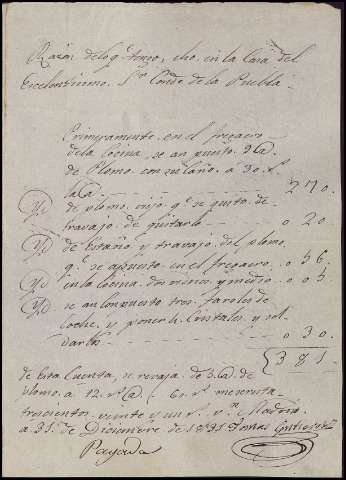 Razon de lo q.e tengo, echo, en la Casa del
Excelentisimo. S.or Conde de la Puebla.
Primeramente. en el fregaero
de la Cocina, se an puesto. 9 @
de Plomo con su laño. a 30. r.s
la @. 270.
Yd de plomo. viejo q.e se quito. de
travajo. de quitarlo 020.
Yd de estaño y travajo. del plomo.
q.e se apuesto. en el fregaero 056
Yd en la Cocina. dos vidrios y medio 005
Yd se an conpuesto tres. faroles de
Coche, y ponerle Cristales. y sol
darlos 030.
381.
de Esta Cuenta, se revaja de 5 @ de
plomo. a 12. r.s @ 60. r.s me resta
trescientos. veinte y un r.s v.n Madrid
a 31. de Diciembre de 1831 Tomas Gutierrez
Pagada